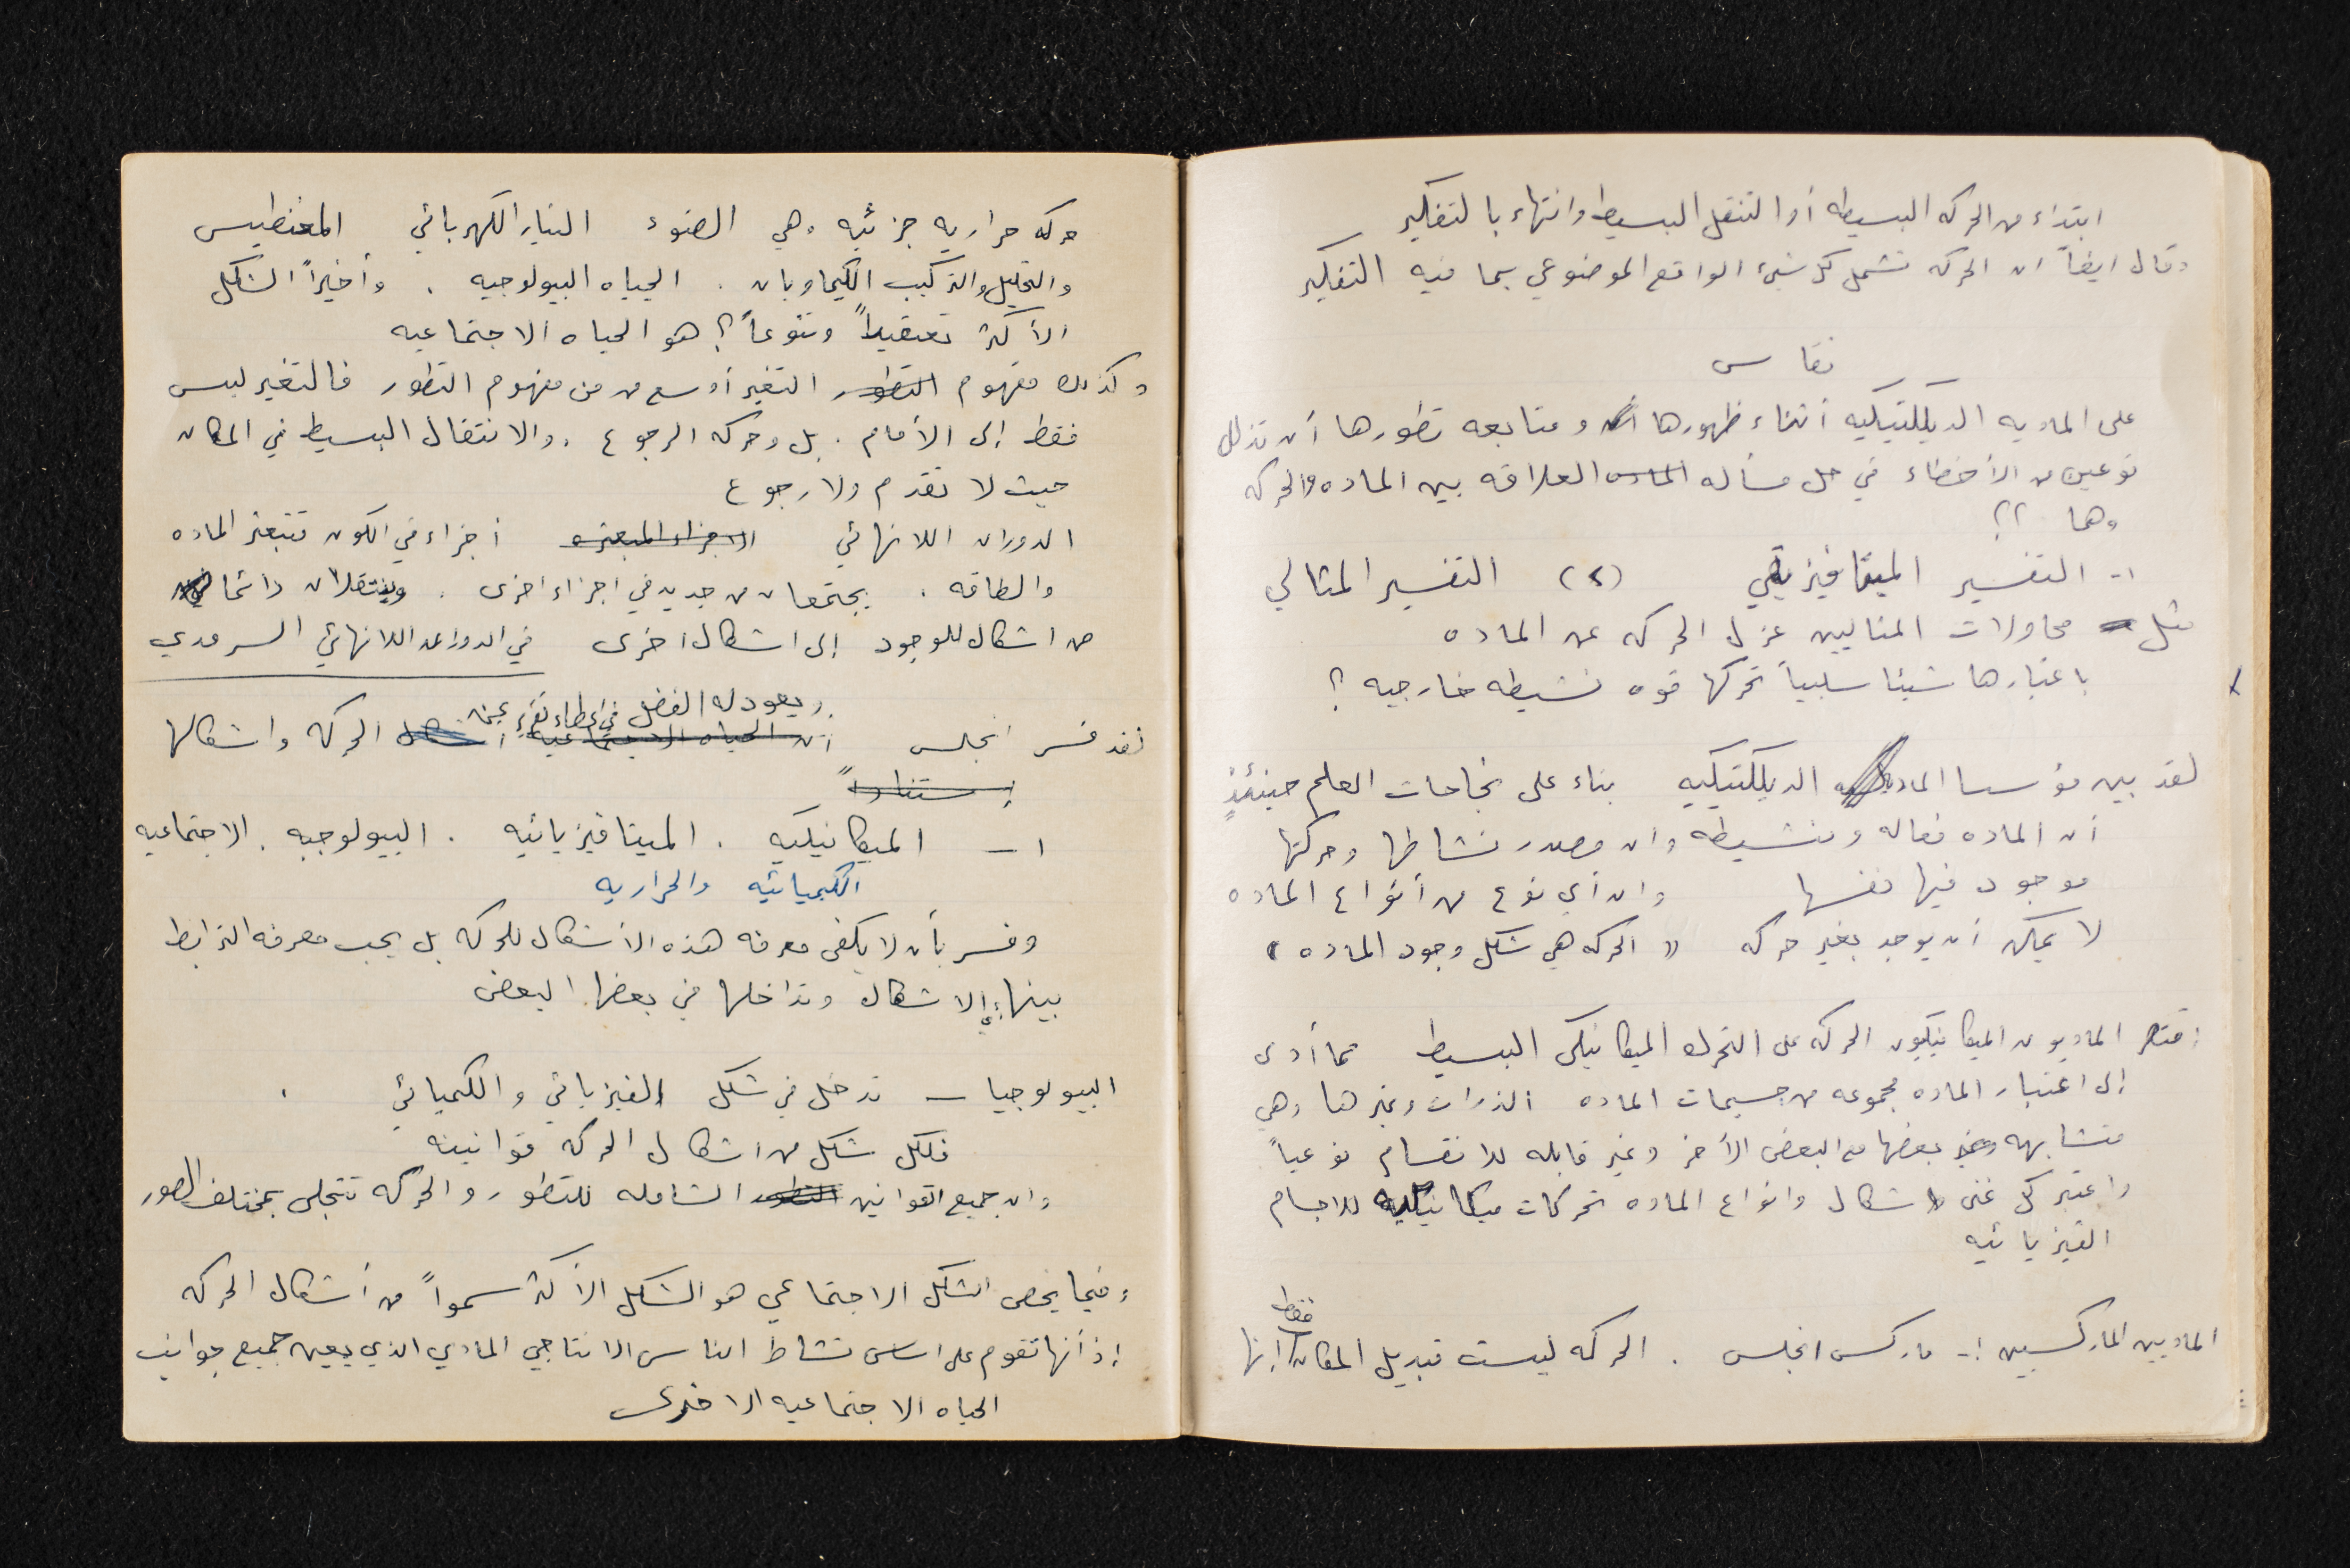 ابتداء من الحركه البسيطه أو التنقل البسيط وانتهاء بالتفكير
وقال ايضاً ان الحركه تشمل كل شيئ الواقع الموضوعي بما فيه التفكير
نقاس
على الماديه الديالكتيكيه أثناء ظهورها و متابعه تطورها أن تذلل
نوعين من الأخطاء في حل مسأله العلاقه بين الماده والحركه
وهما ؟؟
١- التفسير الميتافيزيقي (٢) التفسير المثالي
مثل محاولات المثاليين عزل الحركه عن الماده
باعتبارها شيئا سلبياً تحركها قوه نشيطه خارجيه ؟
لقد بين مؤسسا الماديه الديالكتيكيه بناء على نجاحات العلم حينئذٍ
أن الماده فعاله ونشيطه وان مصدر نشاطها وحركتها
موجود فيها نفسها وان أي نوع من أنواع الماده
لا يمكن أن يوجد بغير حركه " الحركه هي شكل وجود الماده "
اقتصر الماديون الميكانيكيون الحركه على التحرك الميكانيكي البسيط مما أدى
إلى اعتبار الماده مجموعه من جسيمات الماده الذرات وغيرها وهي
متشابهه بعضها مع البعض الأخر وغير قابله للانقسام نوعياً
واعتبر كل غنى اشكال وانواع الماده تحركات ميكانيكيه للاجسام
الفيزيائيه
الماديين الماركسيين :- ماركس انجلس . الحركه ليست تبديل المكان فقط انها
حركه حراريه جزئيه وهي الضوء التيار الكهربائي المغنطيس
والتحليل والتركيب الكيماويان . الحياه البيولوجيه . وأخيراً الشكل
الأكثر تعقيداً وتنوعاً ؟ هو الحياه الاجتماعيه
وكذلك مفهوم التطور التغير أوسع من من مفهوم التطور فالتغير ليس
فقط إلى الأمام . بل وحركه الرجوع . والانتقال البسيط في المكان
حيث لا تقدم ولا رجوع
الدوران اللانهائي الاجزاء المبعثره أجزاء في الكون تتبعثر الماده
والطاقه . يجتمعان من جديد في اجزاء اخرى . وينتقلان دائما
من اشكال للوجود إلى اشكال اخرى في الدوران اللانهائي السرمدي
ويعود له الفضل في إعطاء
لقد فسر انجلس أن الحياه الاجتماعيه اشكال الحركه واشكالها
إستناداً
١ – الميكانيكيه . الميتافيزيائيه . البيولوجيه . الاجتماعيه
الكيميائيه والحراريه
وفسر بأن لا يكفي معرفه هذه الأشكال للحركه بل يجب معرفه الترابط
بينها الاشكال وتداخلها في بعضها البعض
البيولوجيا – تدخل في شكل الفيزيائي والكميائي .
فلكل شكل من اشكال الحركه قوانينه
وان جميع القوانين التطور الشامله للتطور والحركه تتجلى بمختلف الصور
وفيما يخص الشكل الاجتماعي هو الشكل الأكثر سمواً من أشكال الحركه
إذ أنها تقوم على اساس نشاط الناس الانتاجي المادي الذي يعين جميع جوانب
الحياه الاجتماعيه الاخرى